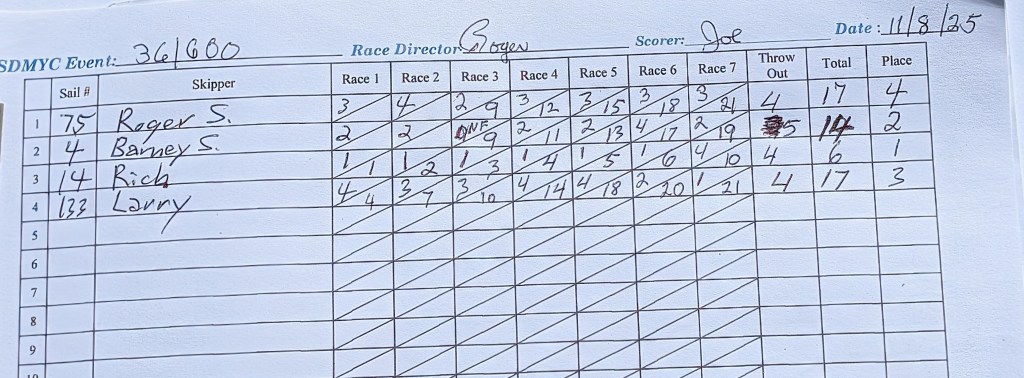 SDMYC Event: 36/600 Race Director Roger Scorer: Joe Date: 11/8/25
Sail # Skipper Race 1 Race 2 Race 3 Race 4 Race 5 Race 6 Race 7 Throw Out Total Place
1 75 Roger S. 3 4 2/9 3/12 3/15 3/18 3/21 4 17 4
2 4 Barney S. 2 2 DNF/9 2/11 2/13 4/17 2/19 5 14 2
3 14 Rich 1/1 1/2 1/3 1/4 1/5 1/6 4/10 4 6 1
4 133 Larry 4/4 3/7 3/10 4/14 4/18 2/20 1/21 4 17 3
5
6
7
8
9
10